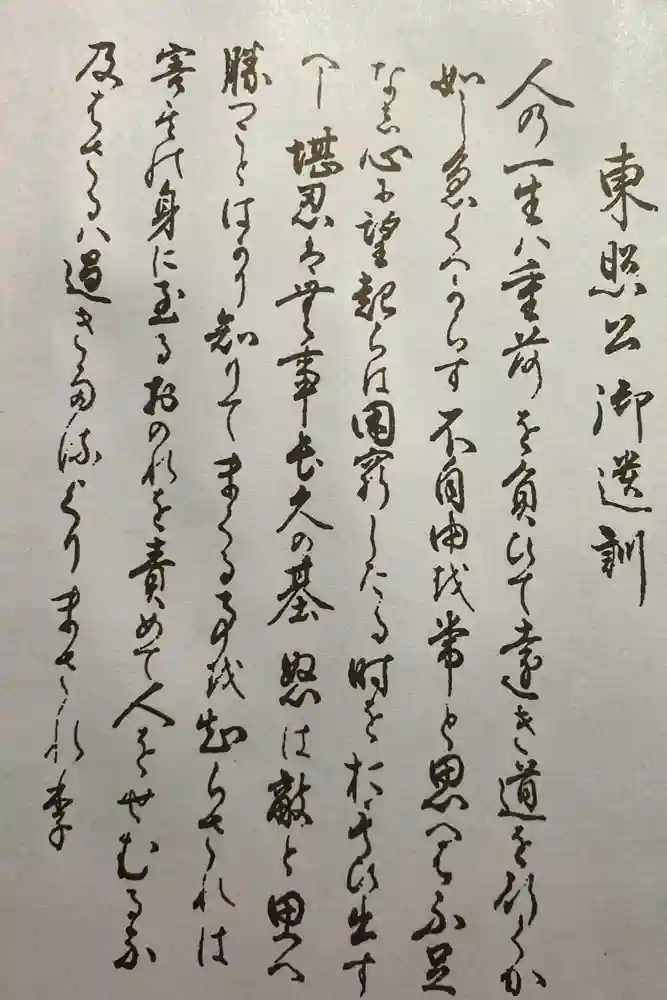 東照公御遺訓
人の一生ハ重荷を負ひて遠き道を行くか
如し急くへからす不自由を常と思へは不足
なし心に望起らは困窮したる時を於もひ出す
へし堪忍は無事長久の基怒は敵と思へ
勝つことはかり知りてまくる事を知らされは
害其の身に至るおのれを責めて人をせむるな
及はさるハ過きたるよりまされ李